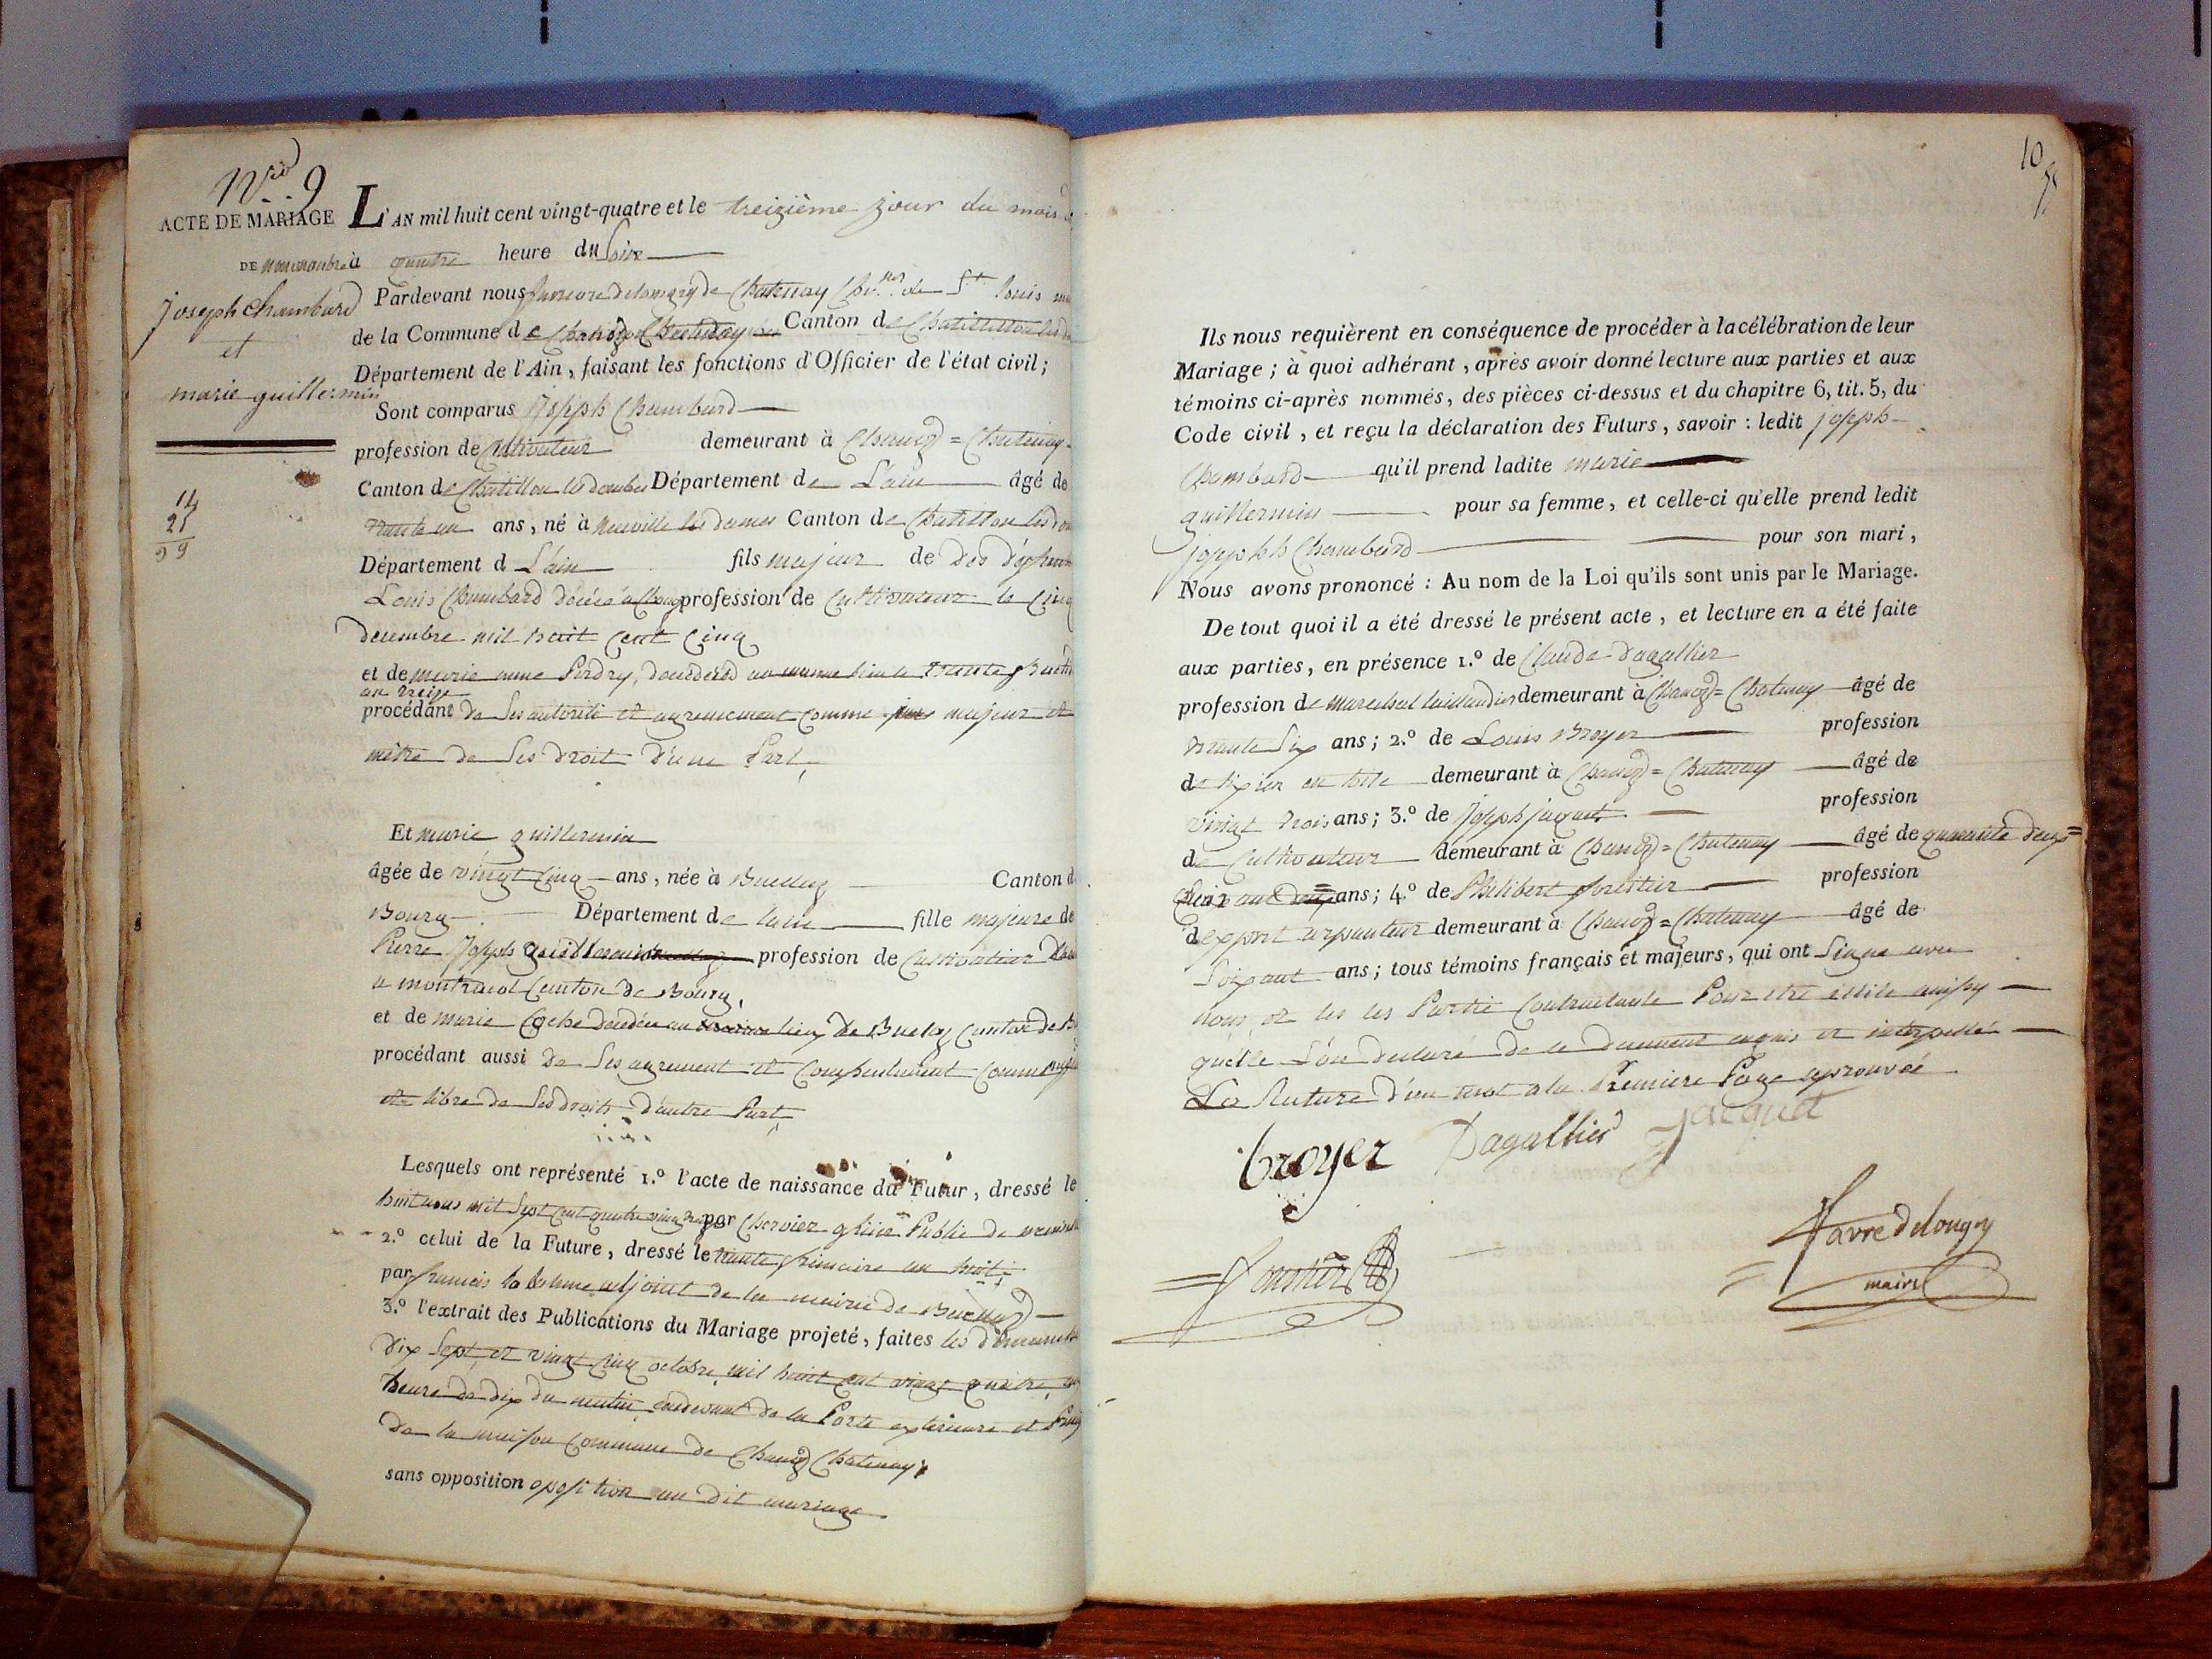 Nro 9
ACTE DE MARIAGE
DE
Joseph Chambard
et
marie guillermin
14
25
99
L'AN mil huit cent vingt-quatre et le treizième jour du mois
novembre à quatre heure du Soire
Pardevant nous favre de longry de Chatenay Ch.er de St louis
de la Commune de Chanoz Chatenay Canton de Chatillon les
Département de l'Ain, faisant les fonctions d'Officier de l'état civil;
Sont comparus Joseph Chambard
profession de Cultivateur demeurant à Chanoz = Chatenay
Canton de Chatillon les dombes Département de L'ain âgé de
trante un ans, né à neuville les dames Canton de Chatillon les
Département d L'ain fils majeur de des défunt
Louis Chambard décéde a Chanoz profession de Cultivateur le Cinq
decembre mil huit Cent Cinq
et de marie anne Perdry, decedé au meme lieu le trante
an treize
procédant de Ses autorité et agreement Comme majeur et
mètre de Ses droit d'une Part,
Et marie guillermin
âgée de vingt Cinq ans, née à Buellaz Canton d
Bourg Département de lain fille majeure de
Pierre Joseph guillermin profession de Cultivateur
a montracol Canton de Bourg,
et de marie Coche decedée au lieu de Buellaz Canton de
procédant aussi de Ses agrement et Comme
et libre de Ses droits d'autre Part,
Lesquels ont représenté 1.º l'acte de naissance du Futur, dressé le
huit mars mil Sept Cent quatre vingt par Chervier Public de
2.º celui de la Future, dressé le trante frimaire an huit
par francois adjoint de la mairie de Buellaz
3.º l'extrait des Publications du Mariage projeté, faites les dimanche
Dix Sept, et vingt Cinq octobre mil huit Cent vingt quatre,
heure de dix du matin audevant de la Porte exterieure et
De la maison Commune de Chanoz Chatenay,
sans opposition oposition au dit mariage
10
Ils nous requièrent en conséquence de procéder à la célébration de leur
Mariage; à quoi adhérant, après avoir donné lecture aux parties et aux
témoins ci-après nommés, des pièces ci-dessus et du chapitre 6, tit. 5, du
Code civil, et reçu la déclaration des Futurs, savoir: ledit joseph
Chambard qu'il prend ladite marie
guillermin pour sa femme, et celle-ci qu'elle prend ledit
joseph Chambard pour son mari,
Nous avons prononcé: Au nom de la Loi qu'ils sont unis par le Mariage.
De tout quoi il a été dressé le présent acte, et lecture en a été faite
aux parties, en présence 1.º de Claude Dagallier
profession de marechal taillandier demeurant à Chanoz = Chatenay âgé de
trante Six ans; 2.º de Louis Broyer profession
de tixier en toile demeurant à Chanoz = Chatenay âgé de
vingt trois ans; 3.º de Joseph jaquet profession
de Cultivateur demeurant à Chanoz = Chatenay âgé de quarante deux =
ans; 4.º de Philibert forestier profession
dexpert arpanteur demeurant à Chanoz = Chatenay âgé de
Soixant ans; tous témoins français et majeurs, qui ont Signe avec
nous, et les Partie Contractante Pour etre
quelle Son declaré de ce dument enquis et interpellé
La Rature d'un mot a la Premiere Page aprouvée
broyer Dagallier Jacquet
Favre delongry
maire